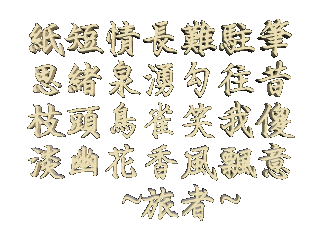 紙短情長難駐筆
思緒泉湧勾往昔
枝頭鳥雀笑我傻
淡幽花香風飄意
~旅者~